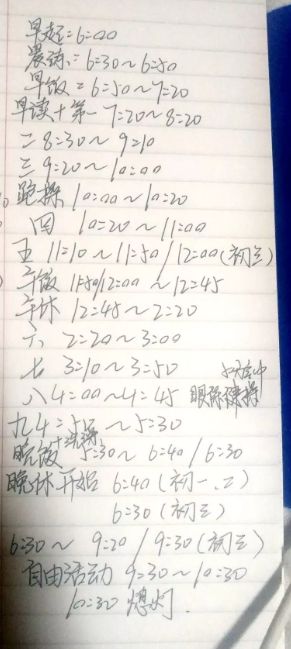 早起：6：00
晨诵：6：30～6：50
早饭：6：50～7：20
早读+第一 7：20～8：20
二 8：30～9：10
三 9：20～10：00
跑操 10：00～10：20
四 10：20～11：00
五 11：10～11：50/12：00（初三）
午饭 11:50/12：00～12：45
午休 12：45～2：20
六 2：20～3：00
七 3：10～3：50
八 4：00～4：45 眼保健操
九 4：55～5：30
晚饭+洗漱 5：30～6：40/6：30
晚休开始 6：40（初一、二）
6：30（初三）
6：30～9：20/9：30（初三）
自由活动 9：30～10：30
10：30 熄灯.